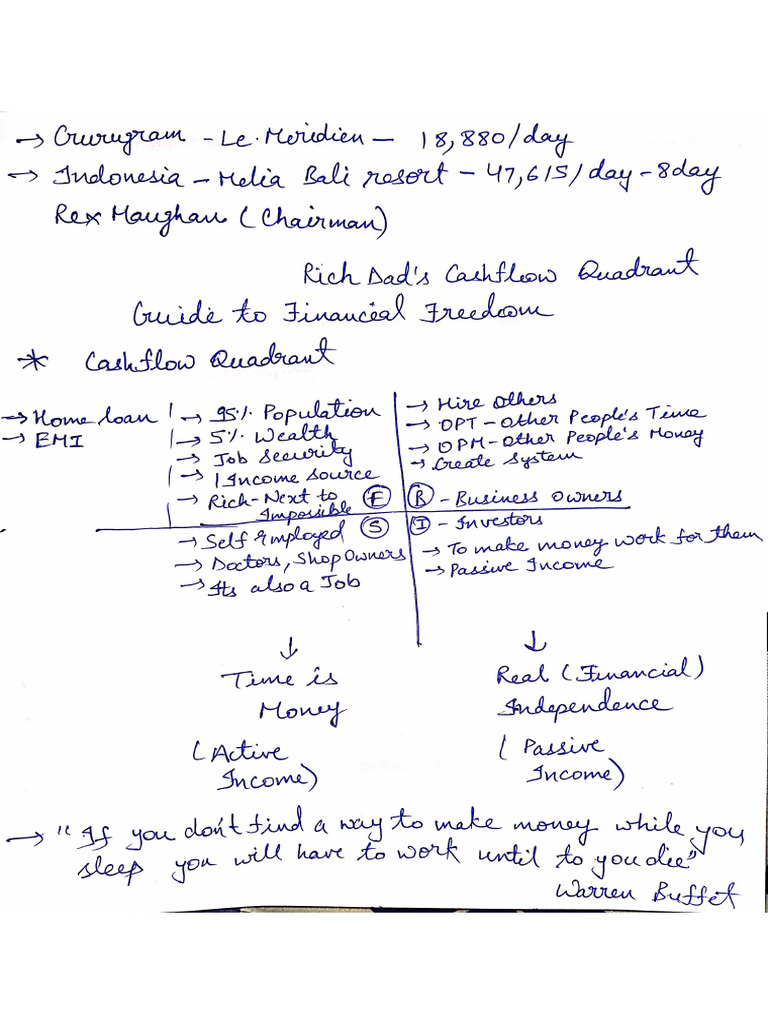 → Gurugram - Le. Meridien - 18,880/day
→ Indonesia - Melia Bali resort - 47,615/day - 8day
Rex Maughan (Chairman)
Rich Dad's Cashflow Quadrant
Guide to Financial Freedom
* Cashflow Quadrant
→ Home loan
→ EMI
→ 95% Population
→ 5% Wealth
→ Job Security
→ 1 Income Source
→ Rich - Next to
Impossible
E
→ Hire Others
→ OPT - Other People's Time
→ OPM - Other People's Money
→ Create System
B - Business Owners
S
→ Self Employed
→ Doctors, Shop Owners
→ Its also a Job
I - Investors
→ To make money work for them
→ Passive Income
↓
Time is
Money
(Active
Income)
↓
Real (Financial)
Independence
(Passive
Income)
→ "If you don't find a way to make money while you
sleep you will have to work until to you die"
Warren Buffet